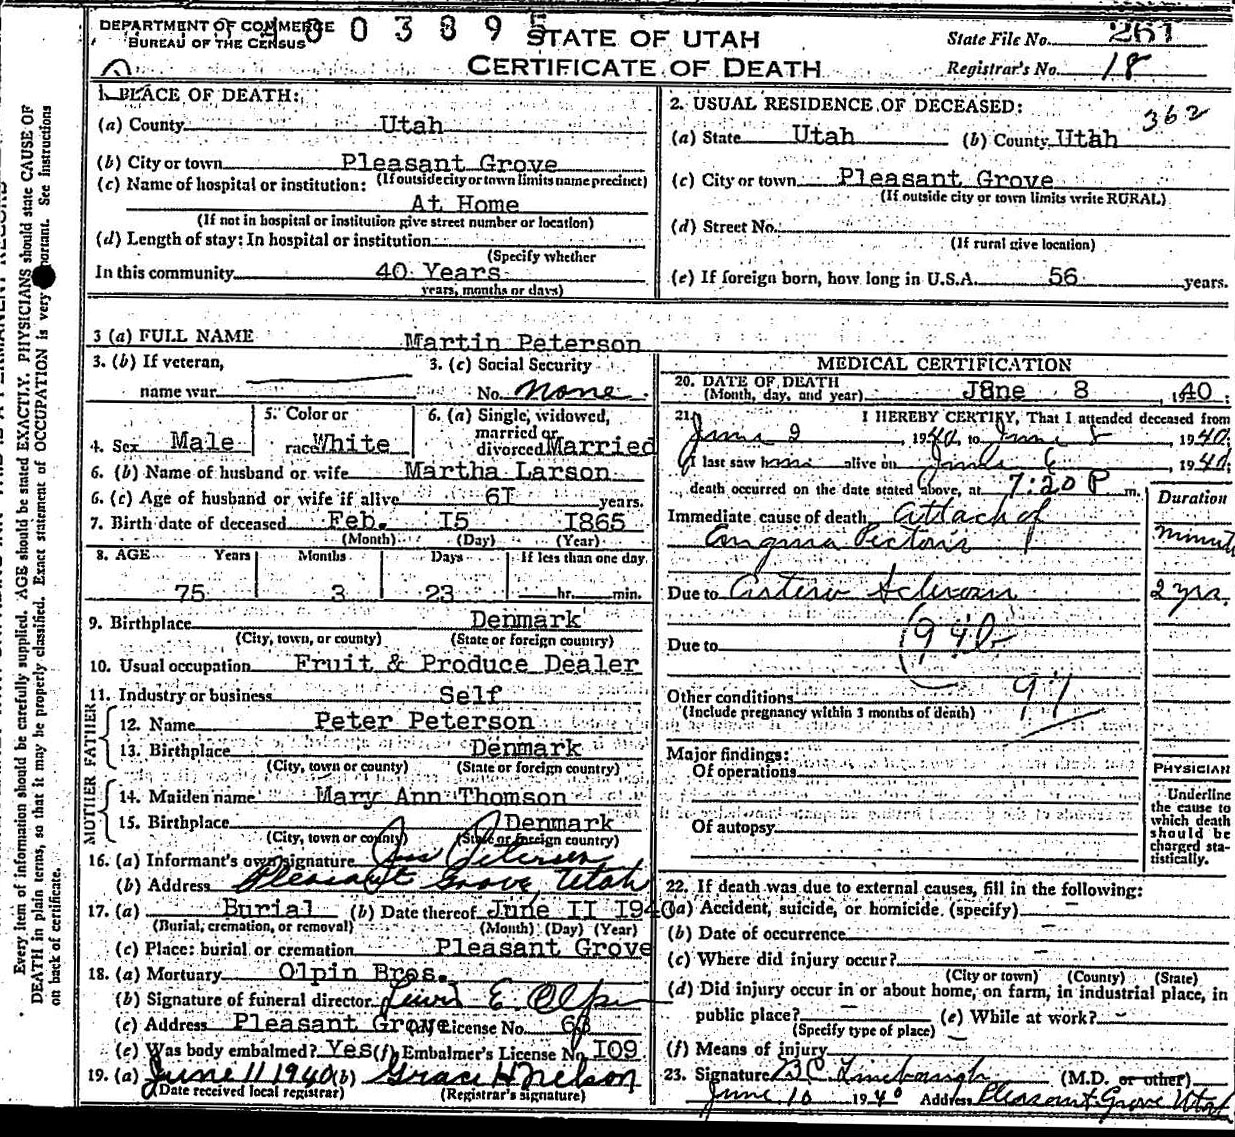 DEPARTMENT OF COMMERCE
BUREAU OF THE CENSUS
STATE OF UTAH
CERTIFICATE OF DEATH
State File No. 261
Registrar's No. 18
1. PLACE OF DEATH:
(a) County Utah
(b) City or town Pleasant Grove
(If outside city or town limits name precinct)
(c) Name of hospital or institution:
At Home
(If not in hospital or institution give street number or location)
(d) Length of stay: In hospital or institution
(Specify whether
In this community 40 Years
years, months or days)
2. USUAL RESIDENCE OF DECEASED: 362
(a) State Utah (b) County Utah
(c) City or town Pleasant Grove
(If outside city or town limits write RURAL)
(d) Street No.
(If rural give location)
(e) If foreign born, how long in U.S.A. 56 years.
3 (a) FULL NAME Martin Peterson
3. (b) If veteran,
name war
3. (c) Social Security
No. none
4. Sex Male
5. Color or
race White
6. (a) Single, widowed,
married or
divorced Married
6. (b) Name of husband or wife Martha Larson
6. (c) Age of husband or wife if alive 61 years.
7. Birth date of deceased Feb. I5 I865
(Month) (Day) (Year)
8. AGE Years Months Days If less than one day
75 3 23 hr. min.
9. Birthplace Denmark
(City, town, or county) (State or foreign country)
10. Usual occupation Fruit & Produce Dealer
11. Industry or business Self
FATHER
12. Name Peter Peterson
13. Birthplace Denmark
(City, town or county) (State or foreign country)
MOTHER
14. Maiden name Mary Ann Thomson
15. Birthplace Denmark
(City, town or county) (State or foreign country)
16. (a) Informant's own signature Petersen
(b) Address Pleasant Grove, Utah
17. (a) Burial (b) Date thereof June II I940
(Burial, cremation, or removal) (Month) (Day) (Year)
(c) Place: burial or cremation Pleasant Grove
18. (a) Mortuary Olpin Bros.
(b) Signature of funeral director Lewis E. Olpin
(c) Address Pleasant Grove License No. 68
(e) Was body embalmed? Yes (f) Embalmer's License No. I09
19. (a) June 11 1940 (b) Grace H Nelson
(Date received local registrar) (Registrar's signature)
MEDICAL CERTIFICATION
20. DATE OF DEATH
(Month, day, and year) June 8, 1940;
21. I HEREBY CERTIFY, That I attended deceased from
June 2, 1940, to June 8, 1940;
I last saw him alive on June 6, 1940;
death occurred on the date stated above, at 7:20 P m.
Duration
Immediate cause of death Attack of
Angina Pectoris Minute
Due to Arterio Sclerosis 2 yrs.
Due to (94b
Other conditions 97
(Include pregnancy within 3 months of death)
Major findings:
Of operations
Of autopsy
PHYSICIAN
Underline
the cause to
which death
should be
charged sta-
tistically.
22. If death was due to external causes, fill in the following:
(a) Accident, suicide, or homicide (specify) -
(b) Date of occurrence -
(c) Where did injury occur? -
(City or town) (County) (State)
(d) Did injury occur in or about home, on farm, in industrial place, in
public place? - (e) While at work? -
(Specify type of place)
(f) Means of injury
23. Signature (M.D. or other)
June 10 1940 Address Pleasant Grove Utah
Every item of information should be carefully supplied. AGE should be stated EXACTLY. PHYSICIANS should state CAUSE OF
DEATH in plain terms, so that it may be properly classified. Exact statement of OCCUPATION is very important. See instructions
on back of certificate.